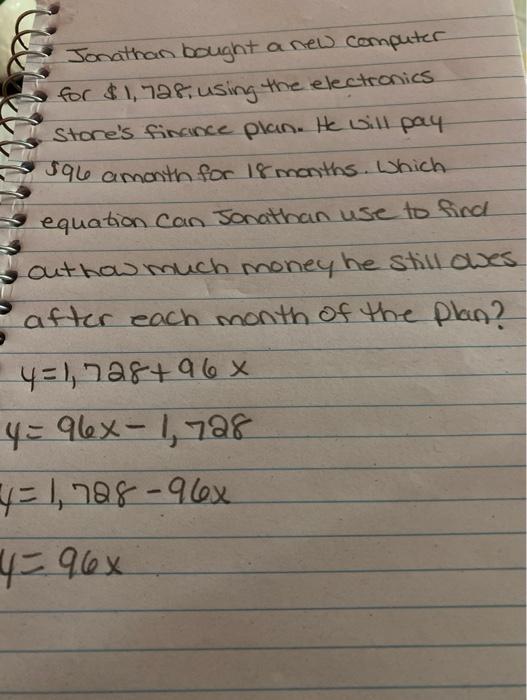 Jonathan bought a new computer
for $1,728, using the electronics
store's finance plan. He will pay
$96 a month for 18 months. Which
equation can Jonathan use to find
out how much money he still owes
after each month of the plan?
y=1,728+96x
y=96x-1,728
y=1,728-96x
y=96x